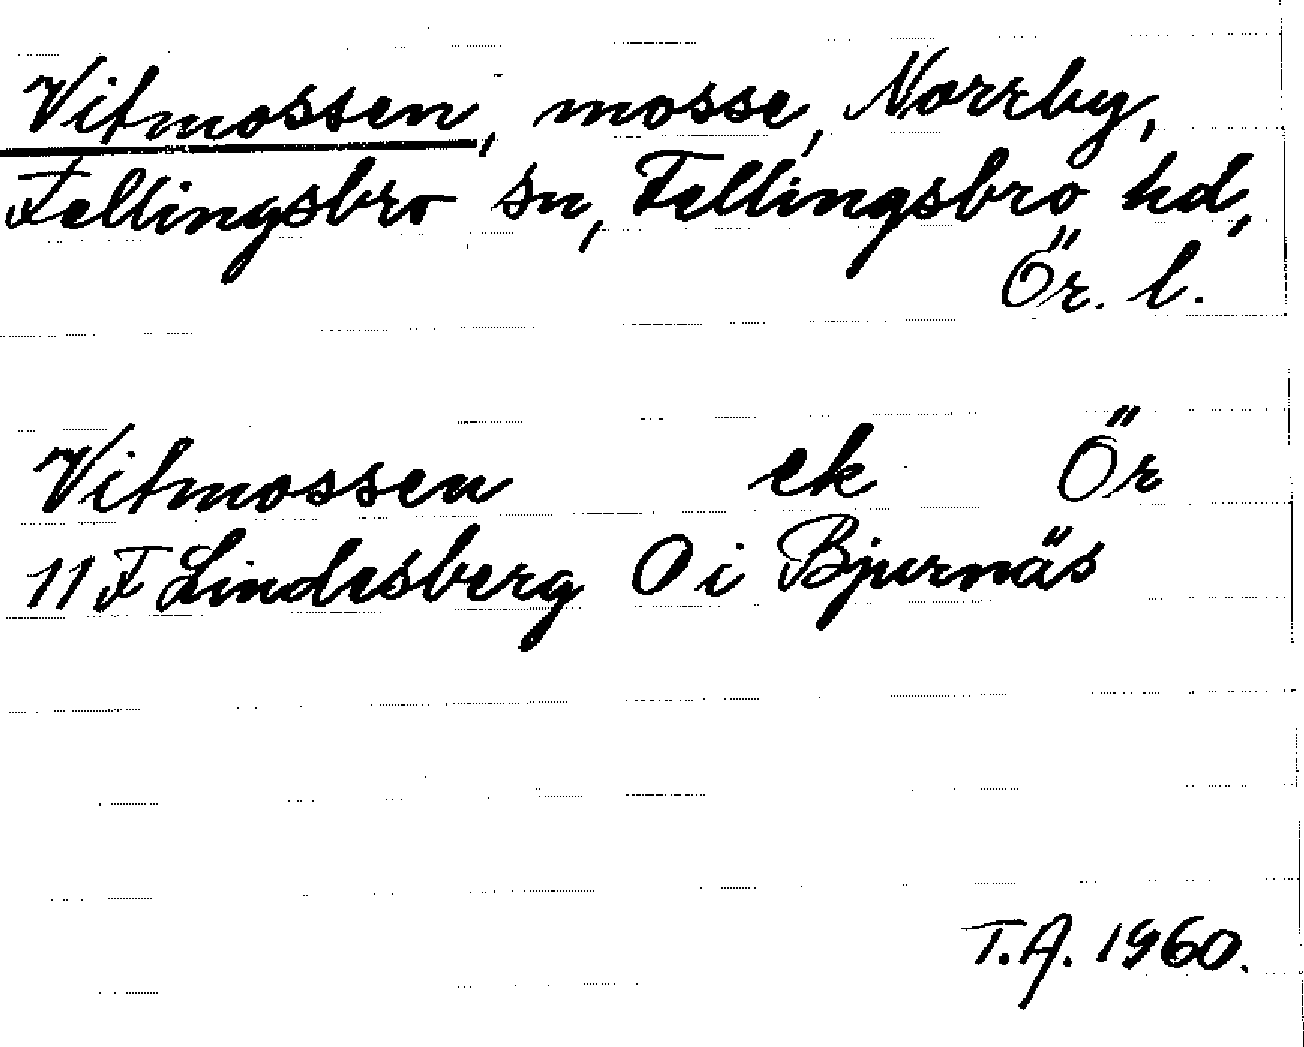 Vitmossen, mosse, Norrby,
Fellingsbro sn, Fellingsbro hd,
Ör. l.
Vitmossen ek Ör
11 F Lindesberg O i Bjurnäs
T.A. 1960.